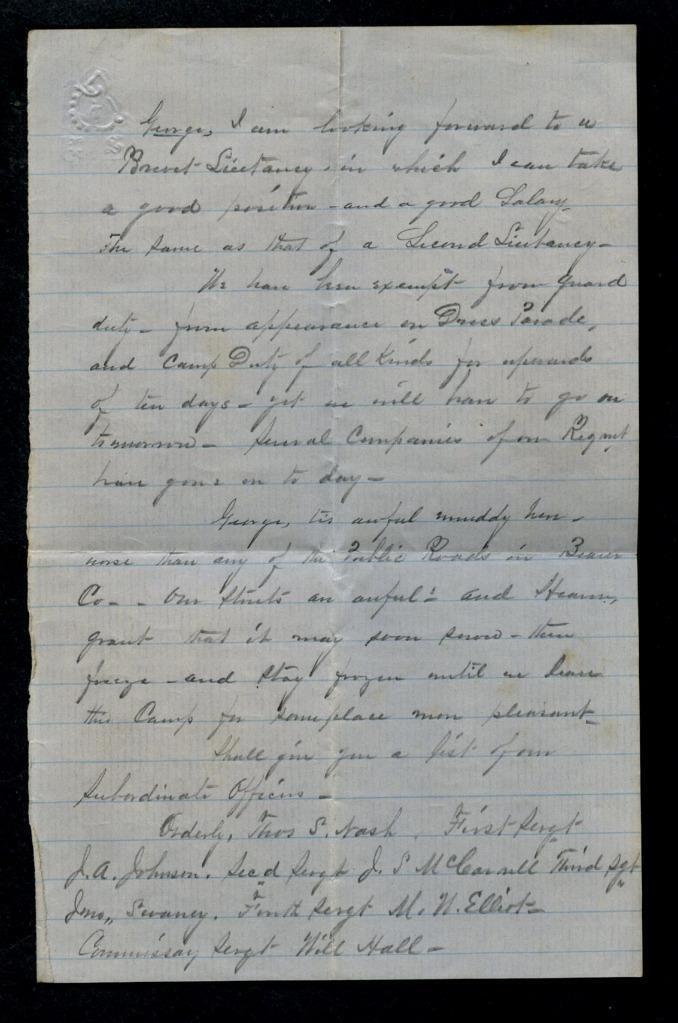 George, I am looking forward to a
Brevet Lieutancy, in which I can take
a good position - and a good Salary -
The same as that of a Second Lieutancy -
We have been exempt from Guard
duty - from appearance on Dress Parade,
and Camp Duty of all kinds for upwards
of ten days - yet we will have to go on
tomorrow - Several Companies of our Regmt
have gone on to day -
George, tis awful muddy here -
worse than any of the Public Roads in Beaver
Co - - Our Streets are awful - and Heaven,
grant that it may soon snow - then
freeze - and stay frozen until we leave
this Camp for someplace more pleasant -
Shall give you a list of our
Subordinate Officers -
Orderly, Thos S. Nash, First Sergt
J. A. Johnson, Secd Sergt J. S McCarnell Third Sgt
Jno,, Swaney, Fourth Sergt M. N. Elliot -
Commissary Sergt Will Hall -